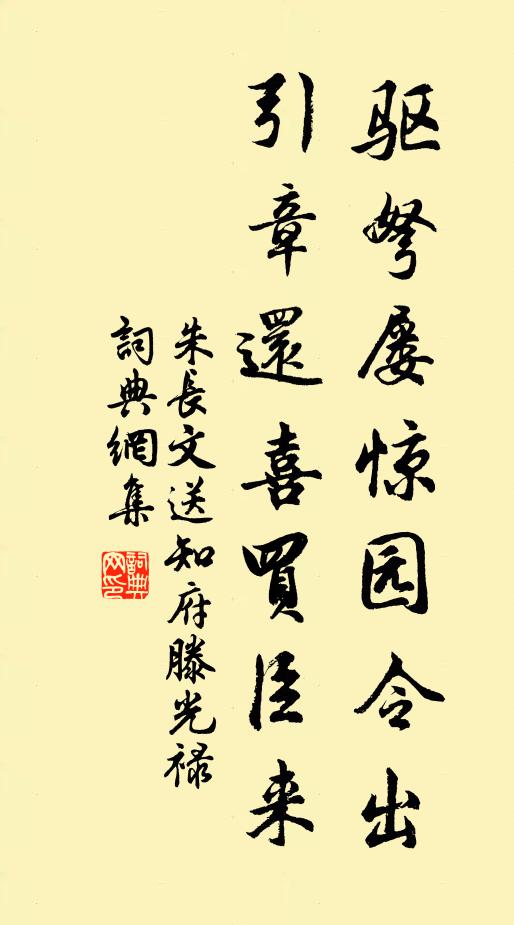 驱弩屡惊园令出
引章還喜買臣来
朱長文送知府滕光禄
詞典網集
詞典网印